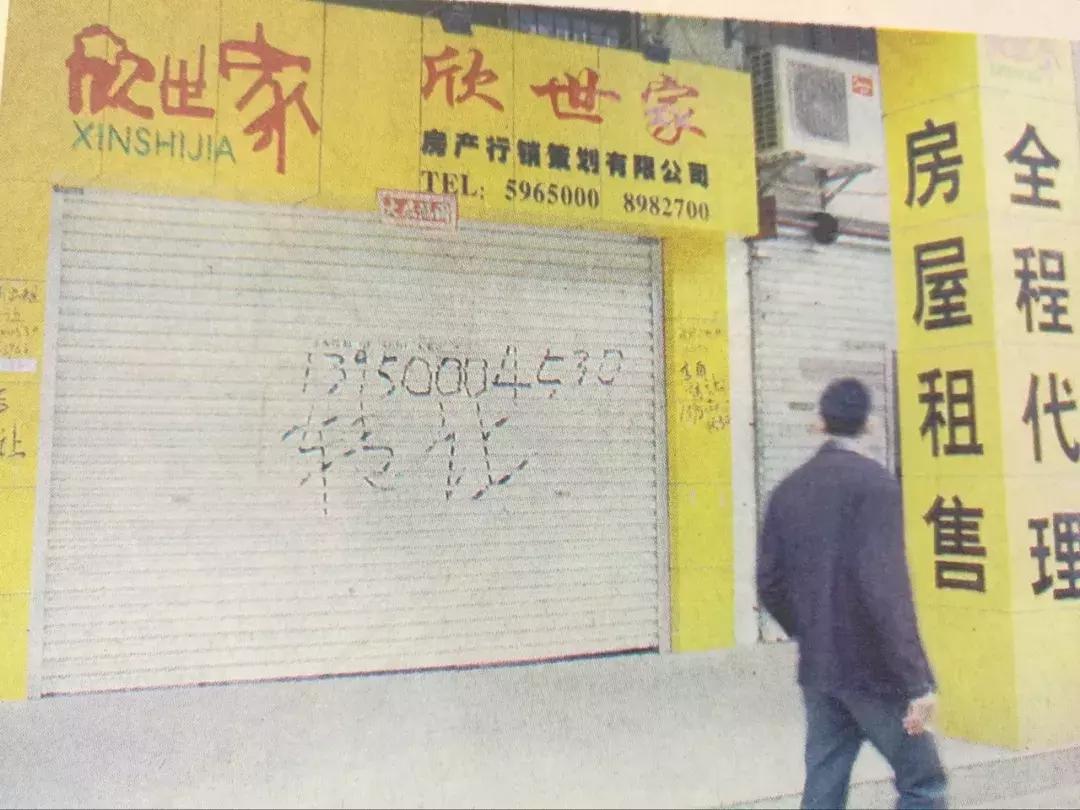 欣世家
XINSHIJIA
欣世家
房产行销策划有限公司
TEL: 5965000 8982700
13950004530
转让
让
房屋租售
全程代理